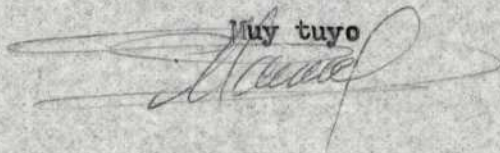 Muy tuyo
Manuel